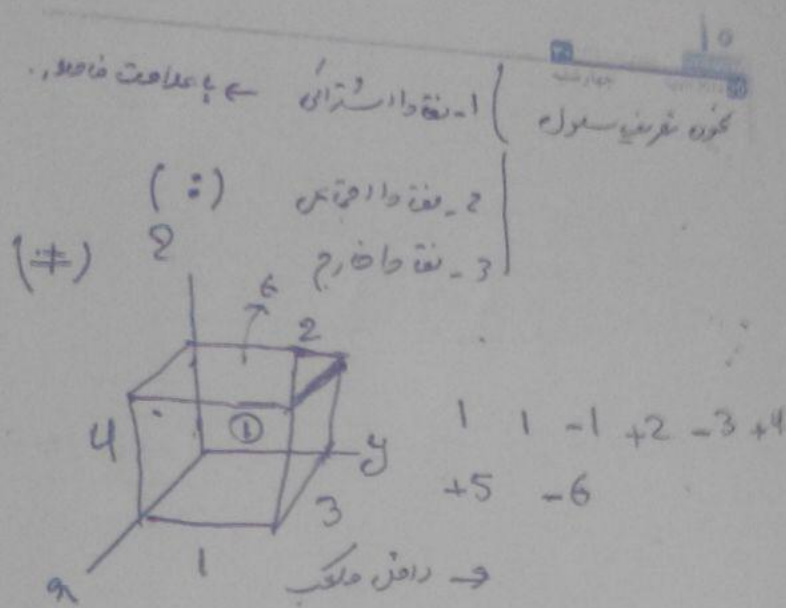 10
چهارشنبه
نحوه تعریف سلول
1- نقاط اشتراکی ← با علامت فاصله
2- نقاط اجتماعی ( : )
3- نقاط خارج (#)
6
2
4 ① y
3
1
1 1 -1 +2 -3 +4
+5 -6
داخل مکعب →